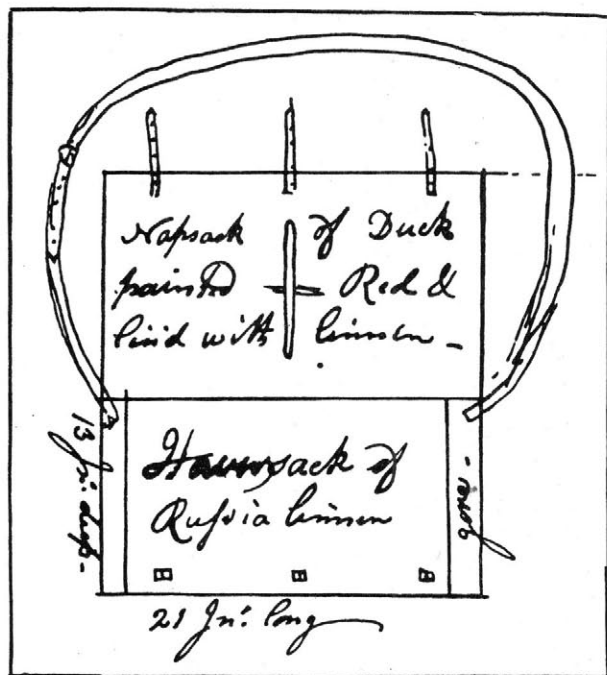 Napsack of Duck
painted Red &
lin'd with linnen -
sack of
Rufsia linnen
13 In: deep -
21 In: long